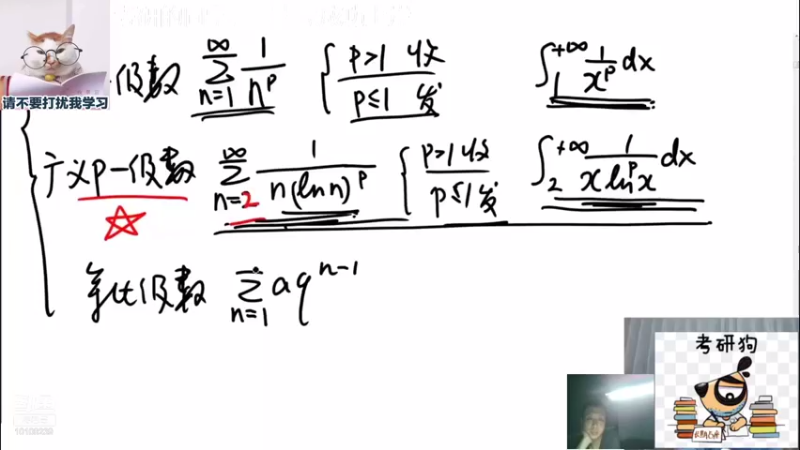 请不要打扰我学习
级数 ∞ ∑ n=1 1/n^p { p>1 收 p≤1 发 ∫_1^{+∞} 1/x^p dx
广义p-级数 ∞ ∑ n=2 1/n(ln n)^p { p>1 收 p≤1 发 ∫_2^{+∞} 1/x ln^p x dx
等比级数 ∑ n=1 aq^{n-1}
考研狗